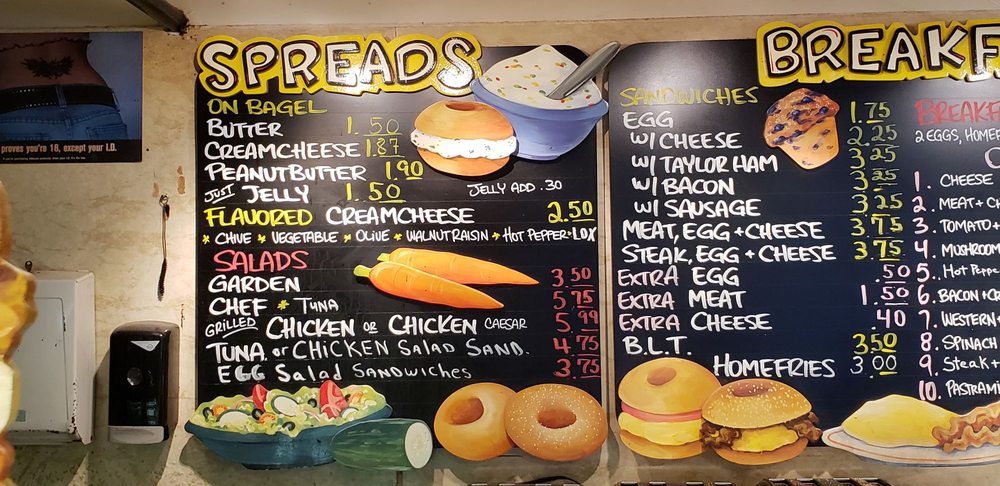 proves you're 18, except your I.D.
SPREADS
ON BAGEL
BUTTER 1.50
CREAMCHEESE 1.87
PEANUTBUTTER 1.90
JUST JELLY 1.50 JELLY ADD .30
FLAVORED CREAMCHEESE 2.50
* CHIVE * VEGETABLE * OLIVE * WALNUTRAISIN * HOT PEPPER * LOX
SALADS
GARDEN 3.50
CHEF * TUNA 5.75
GRILLED CHICKEN OR CHICKEN CAESAR 5.99
TUNA OR CHICKEN SALAD SAND. 4.75
EGG Salad SANDWICHES 3.75
BREAKF
SANDWICHES
EGG 1.75
W/ CHEESE 2.25
W/ TAYLOR HAM 3.25
W/ BACON 3.25
W/ SAUSAGE 3.25
MEAT, EGG + CHEESE 3.75
STEAK, EGG + CHEESE 3.75
EXTRA EGG .50
EXTRA MEAT 1.50
EXTRA CHEESE .40
B.L.T. 3.50
HOMEFRIES 3.00
BREAKF
2 EGGS, HOMEF
1. CHEESE
2. MEAT + CH
3. TOMATO +
4. MUSHROOM
5. Hot Peppe
6. BACON + C
7. WESTERN +
8. SPINACH
9. Steak +
10. PASTRAMI